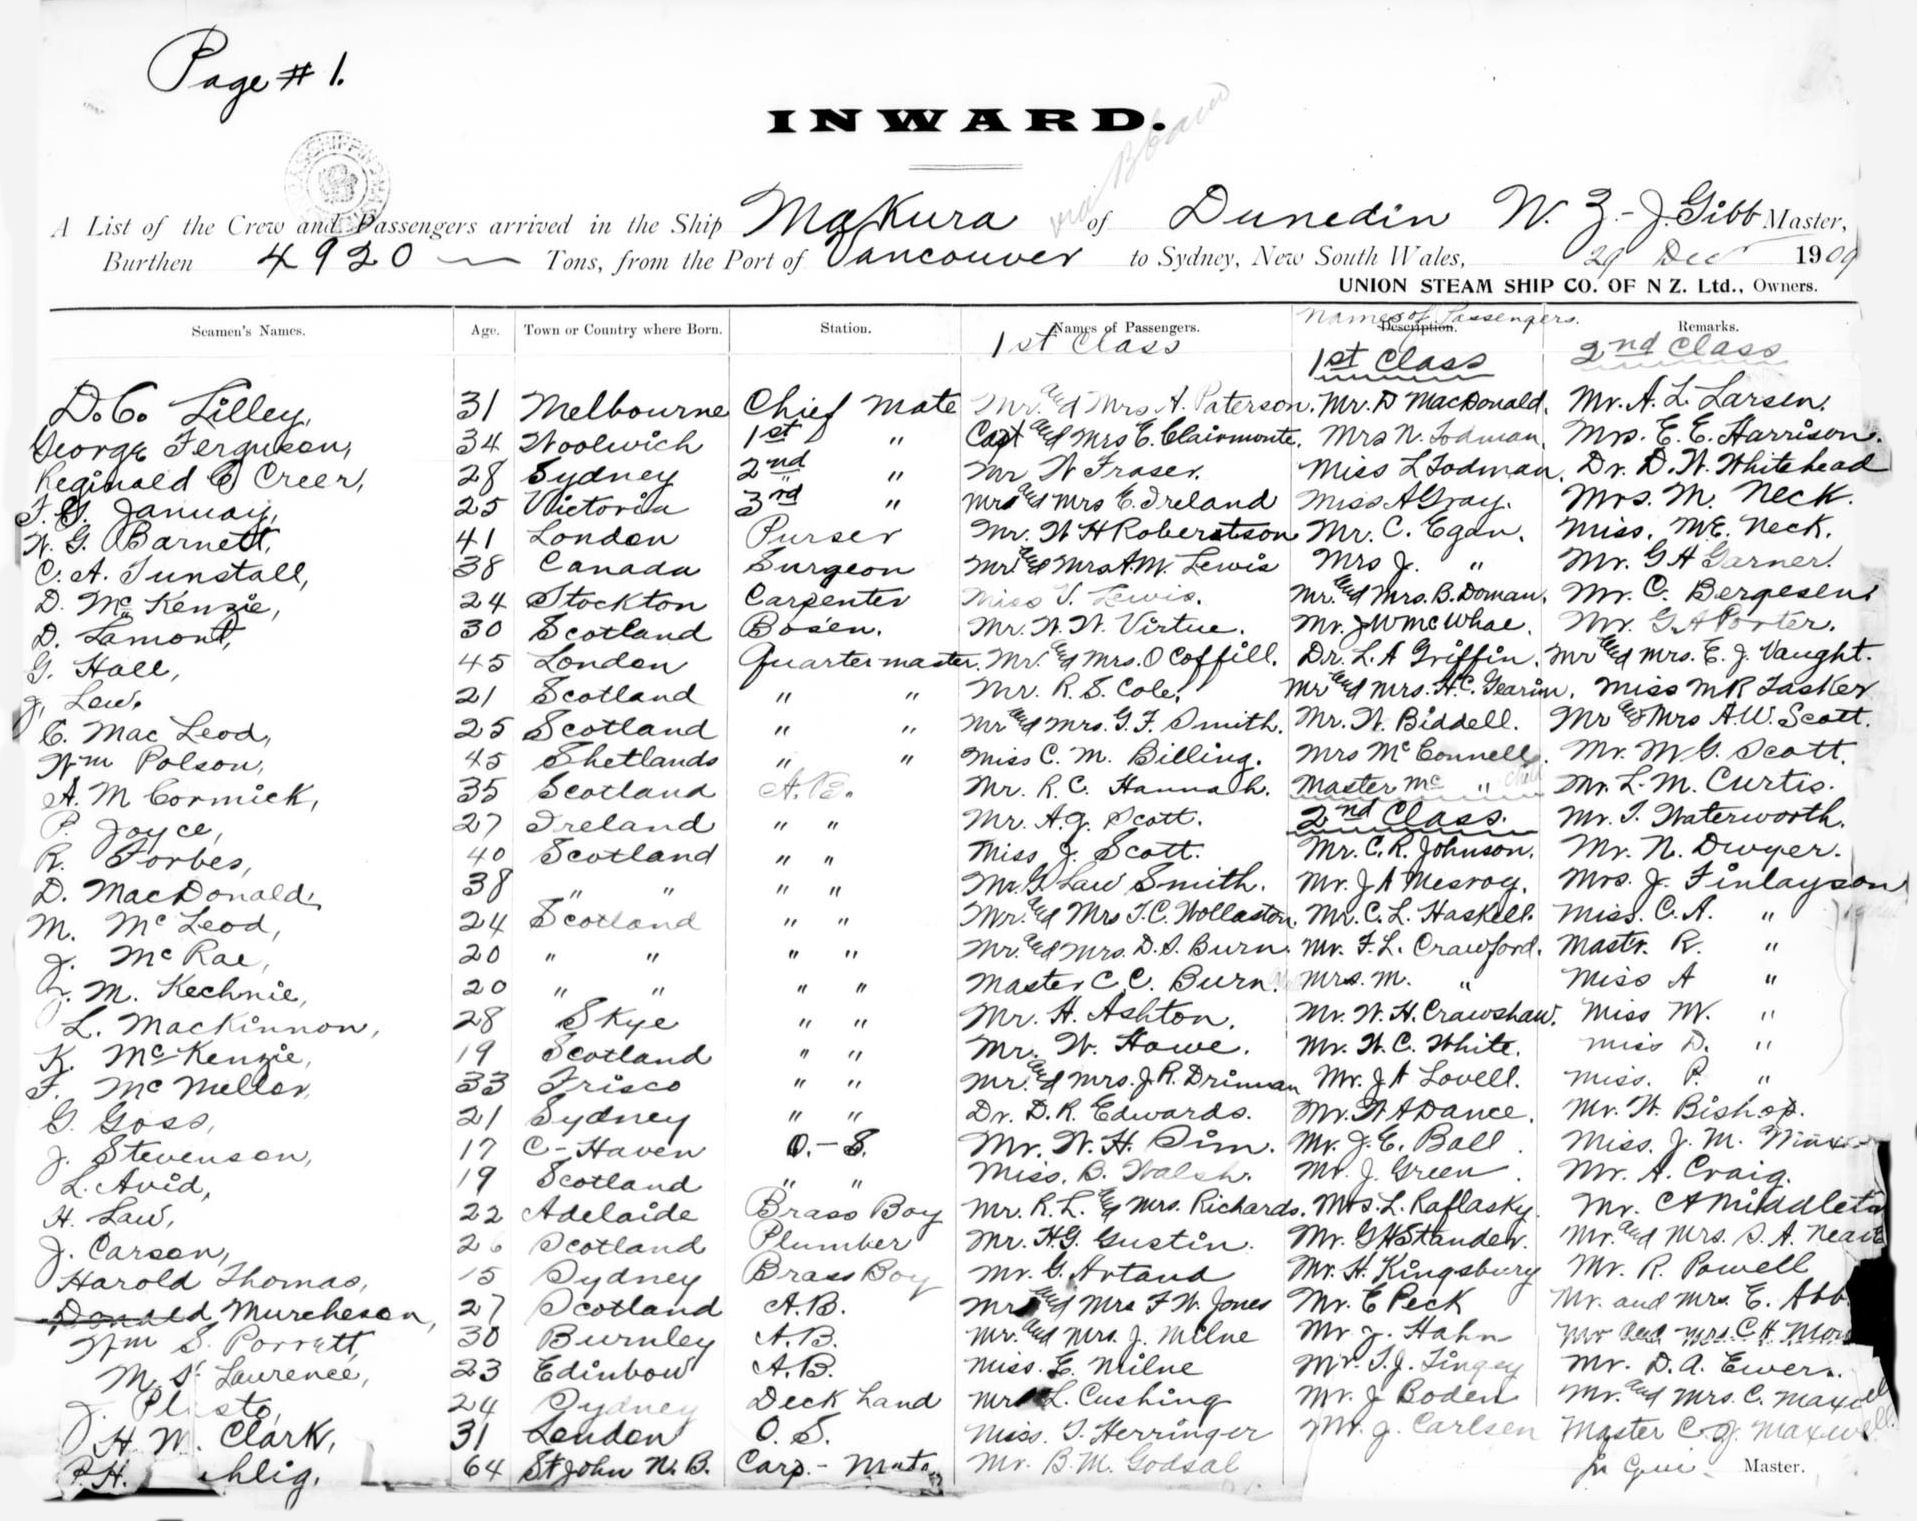 Page # 1.
INWARD.
via Brisbane
A List of the Crew and Passengers arrived in the Ship Makura of Dunedin N. Z. - J. Gibb Master,
Burthen 4920 Tons, from the Port of Vancouver to Sydney, New South Wales, 29 Dec 1909
UNION STEAM SHIP CO. OF N Z. Ltd., Owners.
Names of Passengers.
Seamen's Names. Age. Town or Country where Born. Station. Names of Passengers. Description. Remarks.
1st Class 1st Class 2nd Class
D. C. Lilley, 31 Melbourne Chief Mate Mr. and Mrs A. Paterson. Mr. D MacDonald. Mr. A. L. Larsen.
George Ferguson, 34 Woolwich 1st " Capt and Mrs E. Clairmonte. Mrs N. Todman. Mrs. E. E. Harrison.
Reginald C Creer, 28 Sydney 2nd " Mr W Fraser. Miss L Todman. Dr. D. W. Whitehead
F. G. January, 25 Victoria 3rd " Mr and Mrs E. Ireland Miss A Gray. Mrs. M. Neck.
W. G. Barnett, 41 London Purser Mr. W H Robertson Mr. C. Egan. Miss. M E. Neck.
C. A. Tunstall, 38 Canada Surgeon Mr. and Mrs A M. Lewis Mrs J. " Mr. G A Garner.
D. McKenzie, 24 Stockton Carpenter Miss V. Lewis. Mr. and Mrs. B. Doman. Mr. O. Bergesen
D. Lamont, 30 Scotland Bosen. Mr. W. W. Virtue. Mr. J W McWhae. Mr. G. A Porter.
G. Hall, 45 London Quartermaster. Mr. and Mrs. O Coffill. Dr. L. A Griffin. Mr and Mrs. E. J. Vaught.
J. Law. 21 Scotland " " Mr. R. S. Cole. Mr and Mrs. H. C. Gearin. Miss M R Tasker
C. Mac Leod, 25 Scotland " " Mr and Mrs. G. F. Smith. Mr. W. Biddell. Mr & Mrs A. W. Scott.
Wm Polson, 45 Shetlands " " Miss C. M. Billing. Mrs McConnell. Mr. W G. Scott.
A. M Cormick, 35 Scotland A. B. Mr. R. C. Hannah. Master Mc " child Mr. L. M. Curtis.
P. Joyce, 27 Ireland " " Mr. A. J. Scott. 2nd Class. Mr. T. Waterworth.
R. Forbes, 40 Scotland " " Miss J. Scott. Mr. C. R. Johnson. Mr. N. Dwyer.
D. MacDonald, 38 " " " " Mr. G. Law Smith. Mr. J A Mesroy. Mrs. J. Finlayson
M. McLeod, 24 Scotland " " Mr. and Mrs T. C. Wollaston Mr. C. L. Haskell. Miss. C. A. "
J. McRae, 20 " " " " Mr. and Mrs. D. S. Burn. Mr. F. L. Crawford. Mastr. R. "
M. Kechnie, 20 " " " " Master C. C. Burn. Mrs. M. " Miss A "
L. MacKinnon, 28 Skye " " Mr. H. Ashton. Mr. W. H. Crawshaw. Miss M. "
K. McKenzie, 19 Scotland " " Mr. W. Howe. Mr. W. C. White. Miss D. "
F. McMellor, 33 Frisco " " Mr. and Mrs. J. R. Driman Mr. J A Lovell. Miss. P. "
G. Goss, 21 Sydney " " Dr. D. R. Edwards. Mr. W A Dance. Mr. W. Bishop.
J. Stevenson, 17 C-Haven O.-S. Mr. W. H. Sim. Mr. J. E. Ball. Miss. J. M.
L. Avid, 19 Scotland " " Miss. B. Walsh. Mr. J. Green. Mr. A. Craig.
H. Law, 22 Adelaide Brass Boy Mr. R. L. and Mrs. Richards. Mrs. L. Raflasky. Mr. C A Middleto
J. Carson, 26 Scotland Plumber Mr. H. G. Gustin. Mr. G H Stander. Mr. and Mrs. S. A. Neave
Harold Thomas, 15 Sydney Brass Boy Mr. G. Artaud Mr. H. Kingsbury Mr. R. Powell
Donald Murcheson, 27 Scotland A. B. Mr and Mrs F. W. Jones Mr. E Peck Mr. and Mrs. E. Abb
Wm S. Porrett, 30 Burnley A. B. Mr. and Mrs. J. Milne Mr J. Hahn Mr and Mrs. C. H.
M. St Laurence, 23 Edinbow A. B. Miss. E. Milne Mr. T. J. Tingey Mr. D. A. Ewers.
J. 24 Sydney Deck hand Mr L. Cushing Mr. J Boden Mr. and Mrs. C. Maxwell
H. W. Clark, 31 London O. S. Miss. T. Herringer Mr. J. Carlsen Master C. J. Maxwell.
P. H. hlig. 64 St John N. B. Carp.- Mate Mr. B. M. Godsal Master.